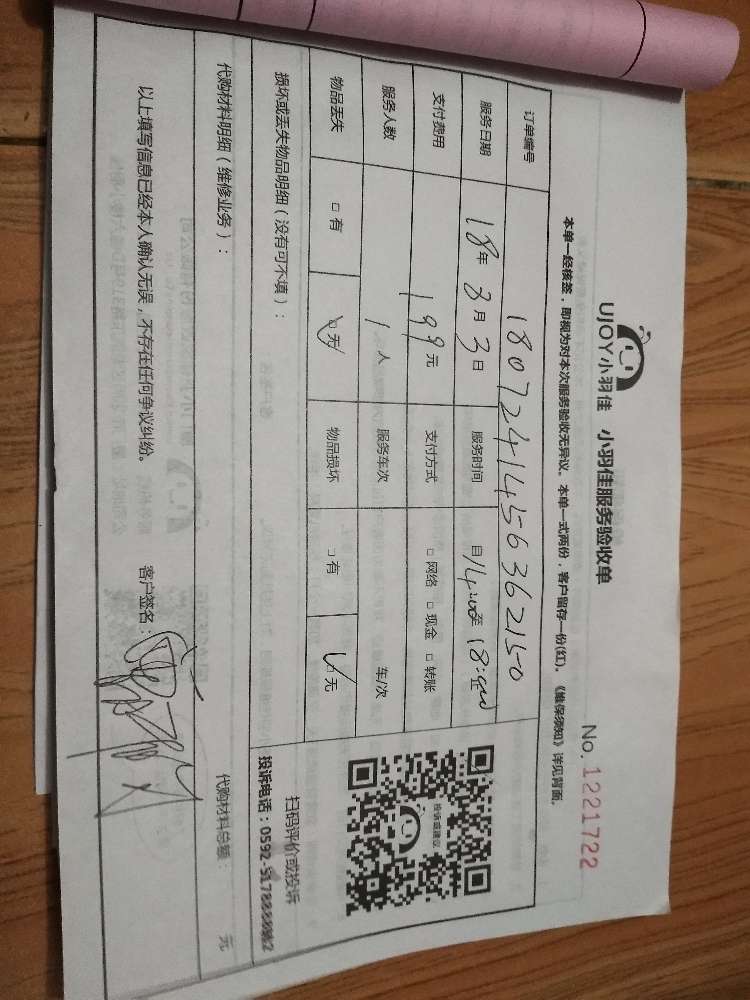 UJOY小羽佳 小羽佳服务验收单
No. 1221722
本单一经核签，即视为对本次服务验收无异议。本单一式两份，客户留存一份(红)。《维保须知》详见背面。
订单编号 1807241456362150
服务日期 18年3月3日 服务时间 自14:00至18:00止
支付费用 199元 支付方式 □网络 □现金 □转账
服务人数 1人 服务车次 车/次
物品丢失 □有 ☑无 物品损坏 □有 ☑无
投诉或建议
扫码评价或投诉
损坏或丢失物品明细（没有可不填）：
投诉电话：0592-5178
代购材料明细（维修业务）： 代购材料总额： 元
以上填写信息已经本人确认无误，不存在任何争议纠纷。 客户签名：